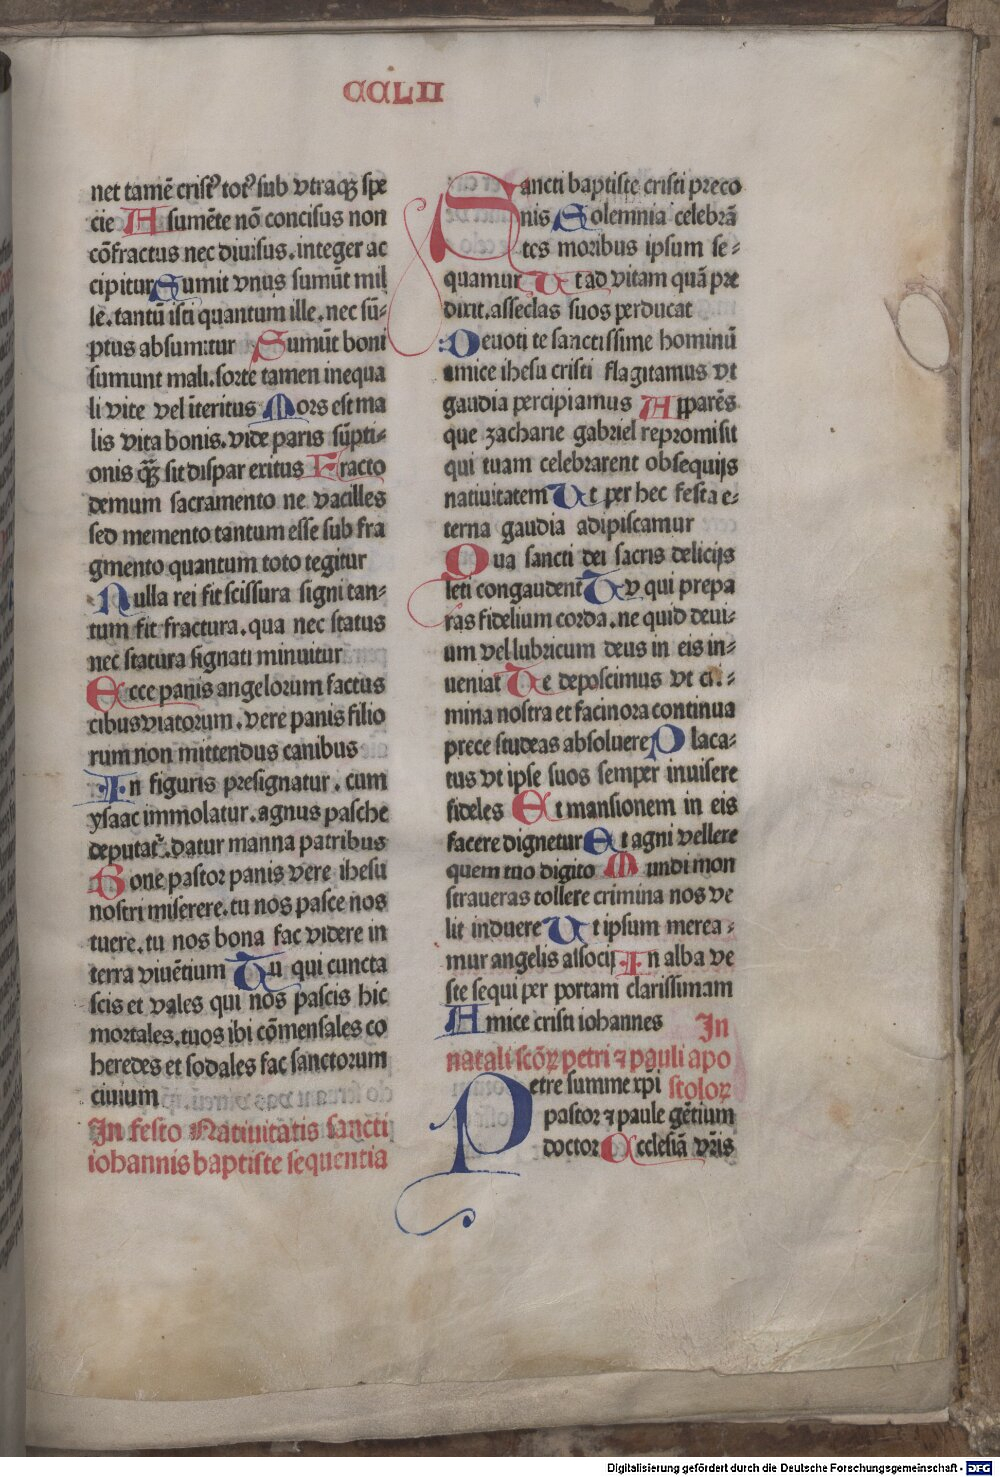 CCLII
net tamē crist᷒ tot᷒ sub vtraqꝫ spe
cie Asumēte nō concisus non
cōfractus nec diuisus. integer ac
cipitur Sumit vnus sumūt mil
le. tantū isti quantum ille. nec sū⸗
ptus absumitur Sumūt boni
sumunt mali. sorte tamen inequa
li vite vel īteritus Mors est ma
lis vita bonis. vide paris sūpti⸗
onis qꝫ̄ sit dispar exitus Fracto
demum sacramento ne vacilles
sed memento tantum esse sub fra
gmento quantum toto tegitur
Nulla rei fit scissura signi tan⸗
tum fit fractura. qua nec status
nec statura signati minuitur
Ecce panis angelorum factus
cibus viatorum. vere panis filio
rum non mittendus canibus
In figuris presignatur. cum
ysaac immolatur. agnus pasche
deputat᷑. datur manna patribus
Bone pastor panis vere ihesu
nostri miserere. tu nos pasce nos
tuere. tu nos bona fac videre in
terra viuētium Tu qui cuncta
scis et vales qui nos pascis hic
mortales. tuos ibi cōmensales co
heredes et sodales fac sanctorum
ciuium
In festo Natiuitatis sancti
iohannis baptiste sequentia
Sancti baptiste cristi preco
nis Solemnia celebrā
tes moribus ipsum se⸗
quamur Ut ad vitam quā pre
dixit. asseclas suos perducat
Deuoti te sanctissime hominū
amice ihesu cristi flagitamus vt
gaudia percipiamus Apparēs
que zacharie gabriel repromisit
qui tuam celebrarent obsequijs
natiuitatem Ut per hec festa e⸗
terna gaudia adipiscamur
Qua sancti dei sacris delicijs
leti congaudent Tv qui prepa
ras fidelium corda. ne quid deui⸗
um vel lubricum deus in eis in⸗
ueniat Te deposcimus vt cri⸗
mina nostra et facinora continua
prece studeas absoluere Placa⸗
tus vt ipse suos semper inuisere
fideles Et mansionem in eis
facere dignetur Et agni vellere
quem tuo digito Mundi mon
straueras tollere crimina nos ve
lit induere Ut ipsum merea⸗
mur angelis associj In alba ve
ste sequi per portam clarissimam
Amice cristi iohannes In
natali scōꝝ petri ⁊ pauli apo
stoloꝝ
Petre summe xp̄i
pastor ⁊ paule gētium
doctor Ecclesiā vr̄is
Digitalisierung gefördert durch die Deutsche Forschungsgemeinschaft - DFG